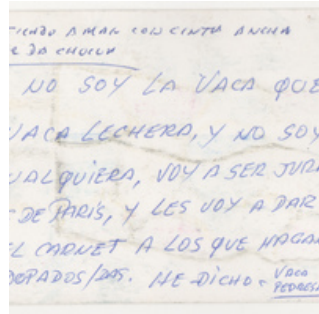 A MAN CON CINTA ANCHA
NO SOY LA VACA QUE
VACA LECHERA, Y NO SOY
UALQUIERA, VOY A SER JURA
DE PARÍS, Y LES VOY A DAR
EL CARNET A LOS QUE HAGAN
DOPADOS/DAS. HE DICHO - VACA